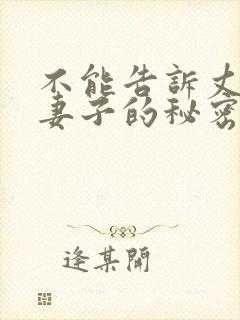 不能告訴丈
妻子的秘密
逢某開